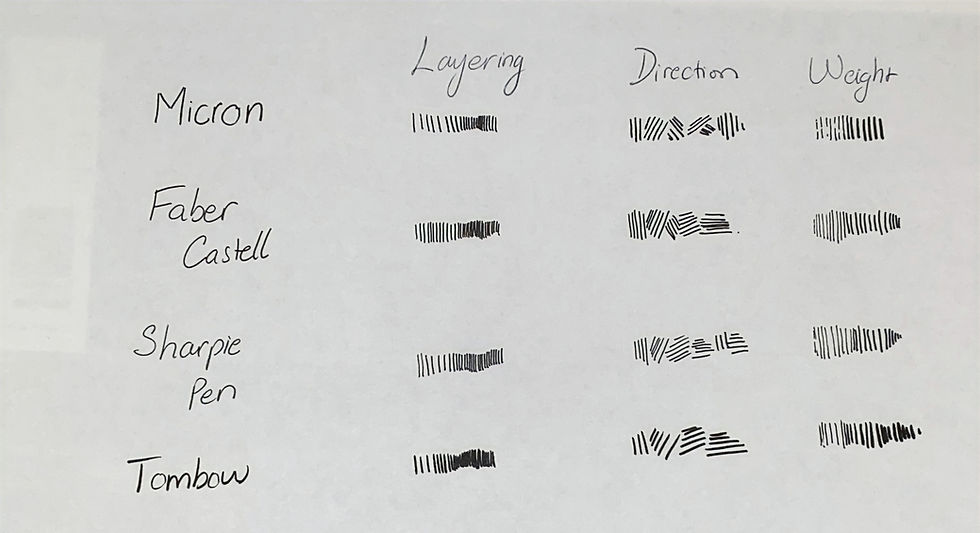 Layering Direction Weight
Micron
Faber
Castell
Sharpie
Pen
Tombow